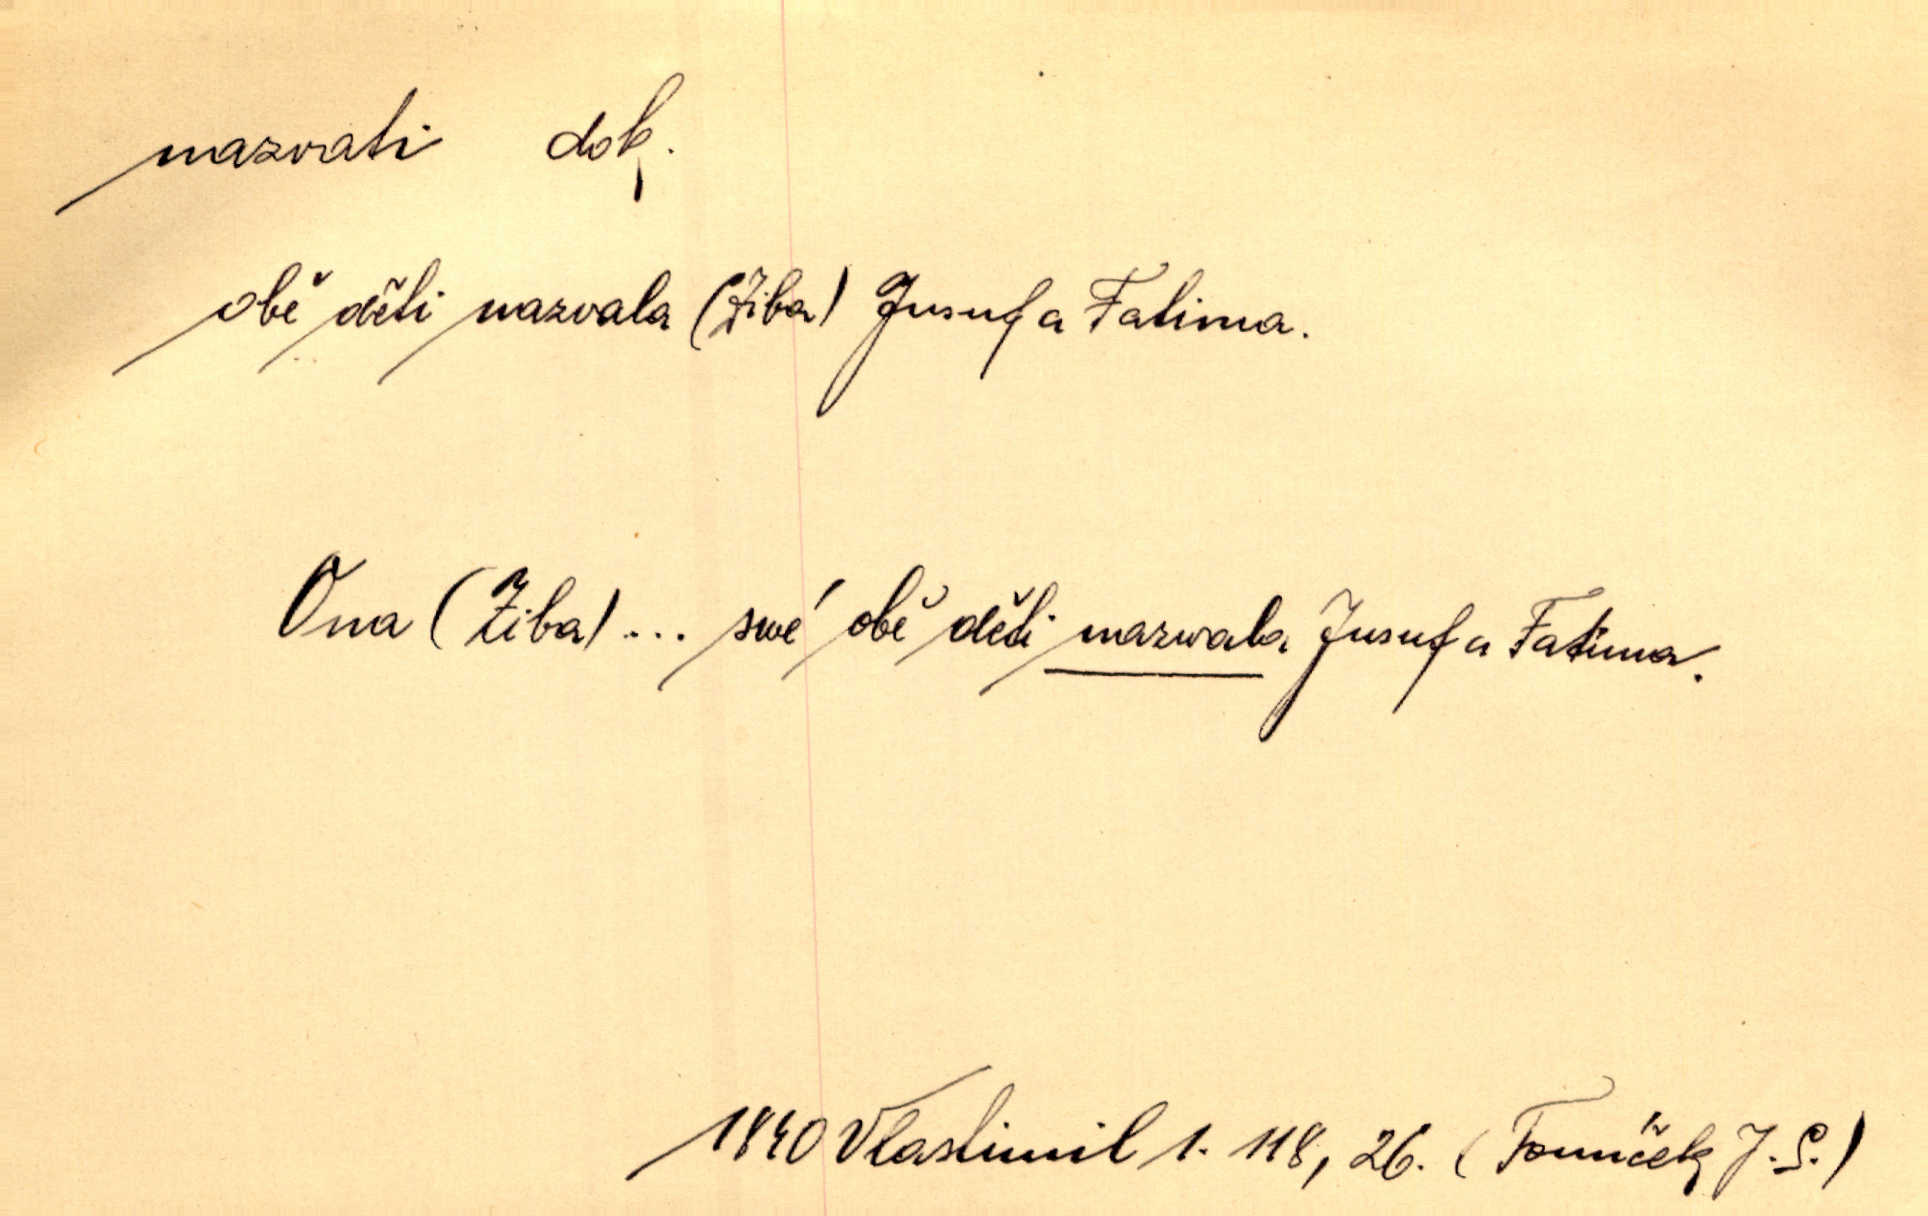 nazvati dok.
obě děti nazvala (Ziba) Jusuf a Fatima.
Ona (Ziba) ... swé obě děti nazwala Jusuf a Fatima.
1840 Vlastimil 1. 118, 26. (Tomíček J. S.)